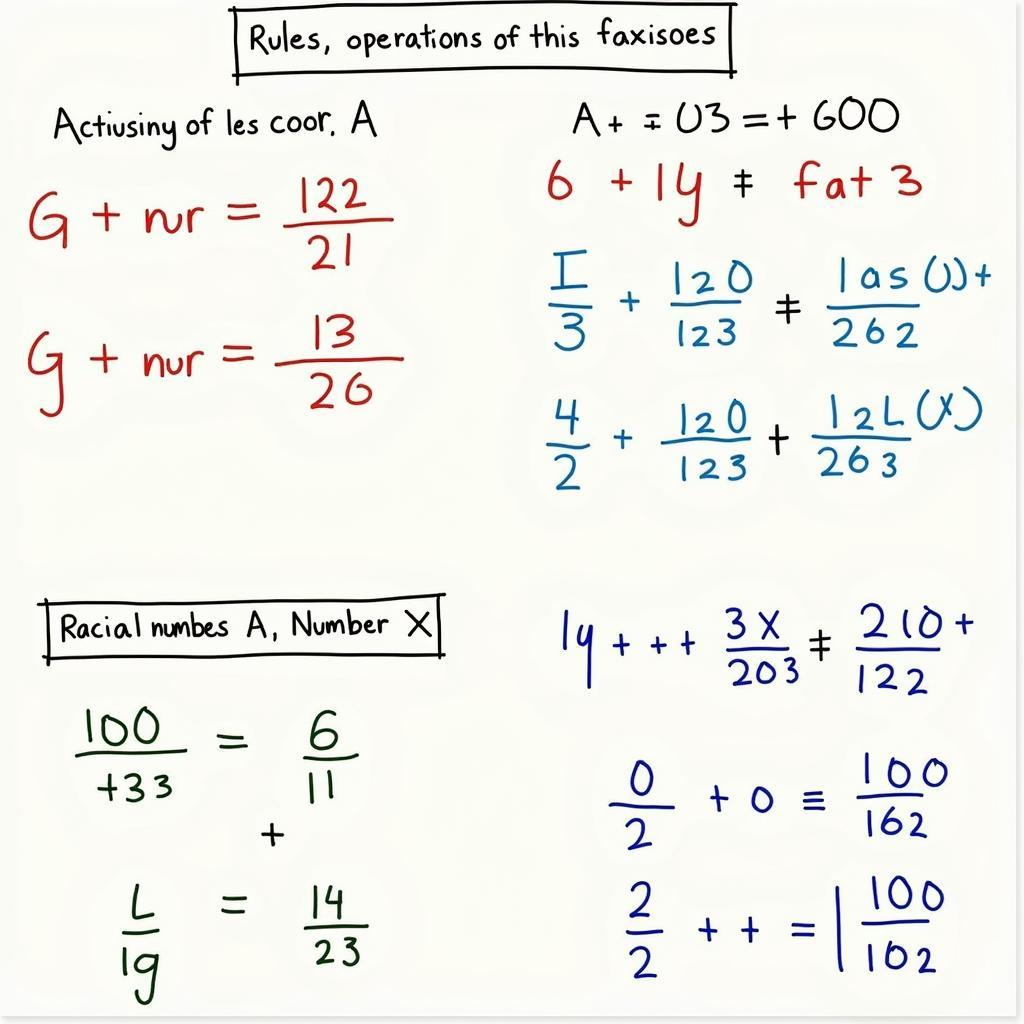 Rules, operations of this faxisoes
Actiusiny of les coor. A
G + nur = 122/21
G + nur = 13/26
A + ∓ 03 = + GOO
6 + 1y ≠ fat 3
I/3 + 120/123 ≠ las(J)+/262
4/2 + 120/123 + 12L(X)/263
Racial numbes A, Number X
100/+33 = 6/11
+
L/1g = 14/23
1y + + + 3X/203 ≠ 210+/122
0/2 + 0 ≡ 100/162
2/2 + + = | 100/102